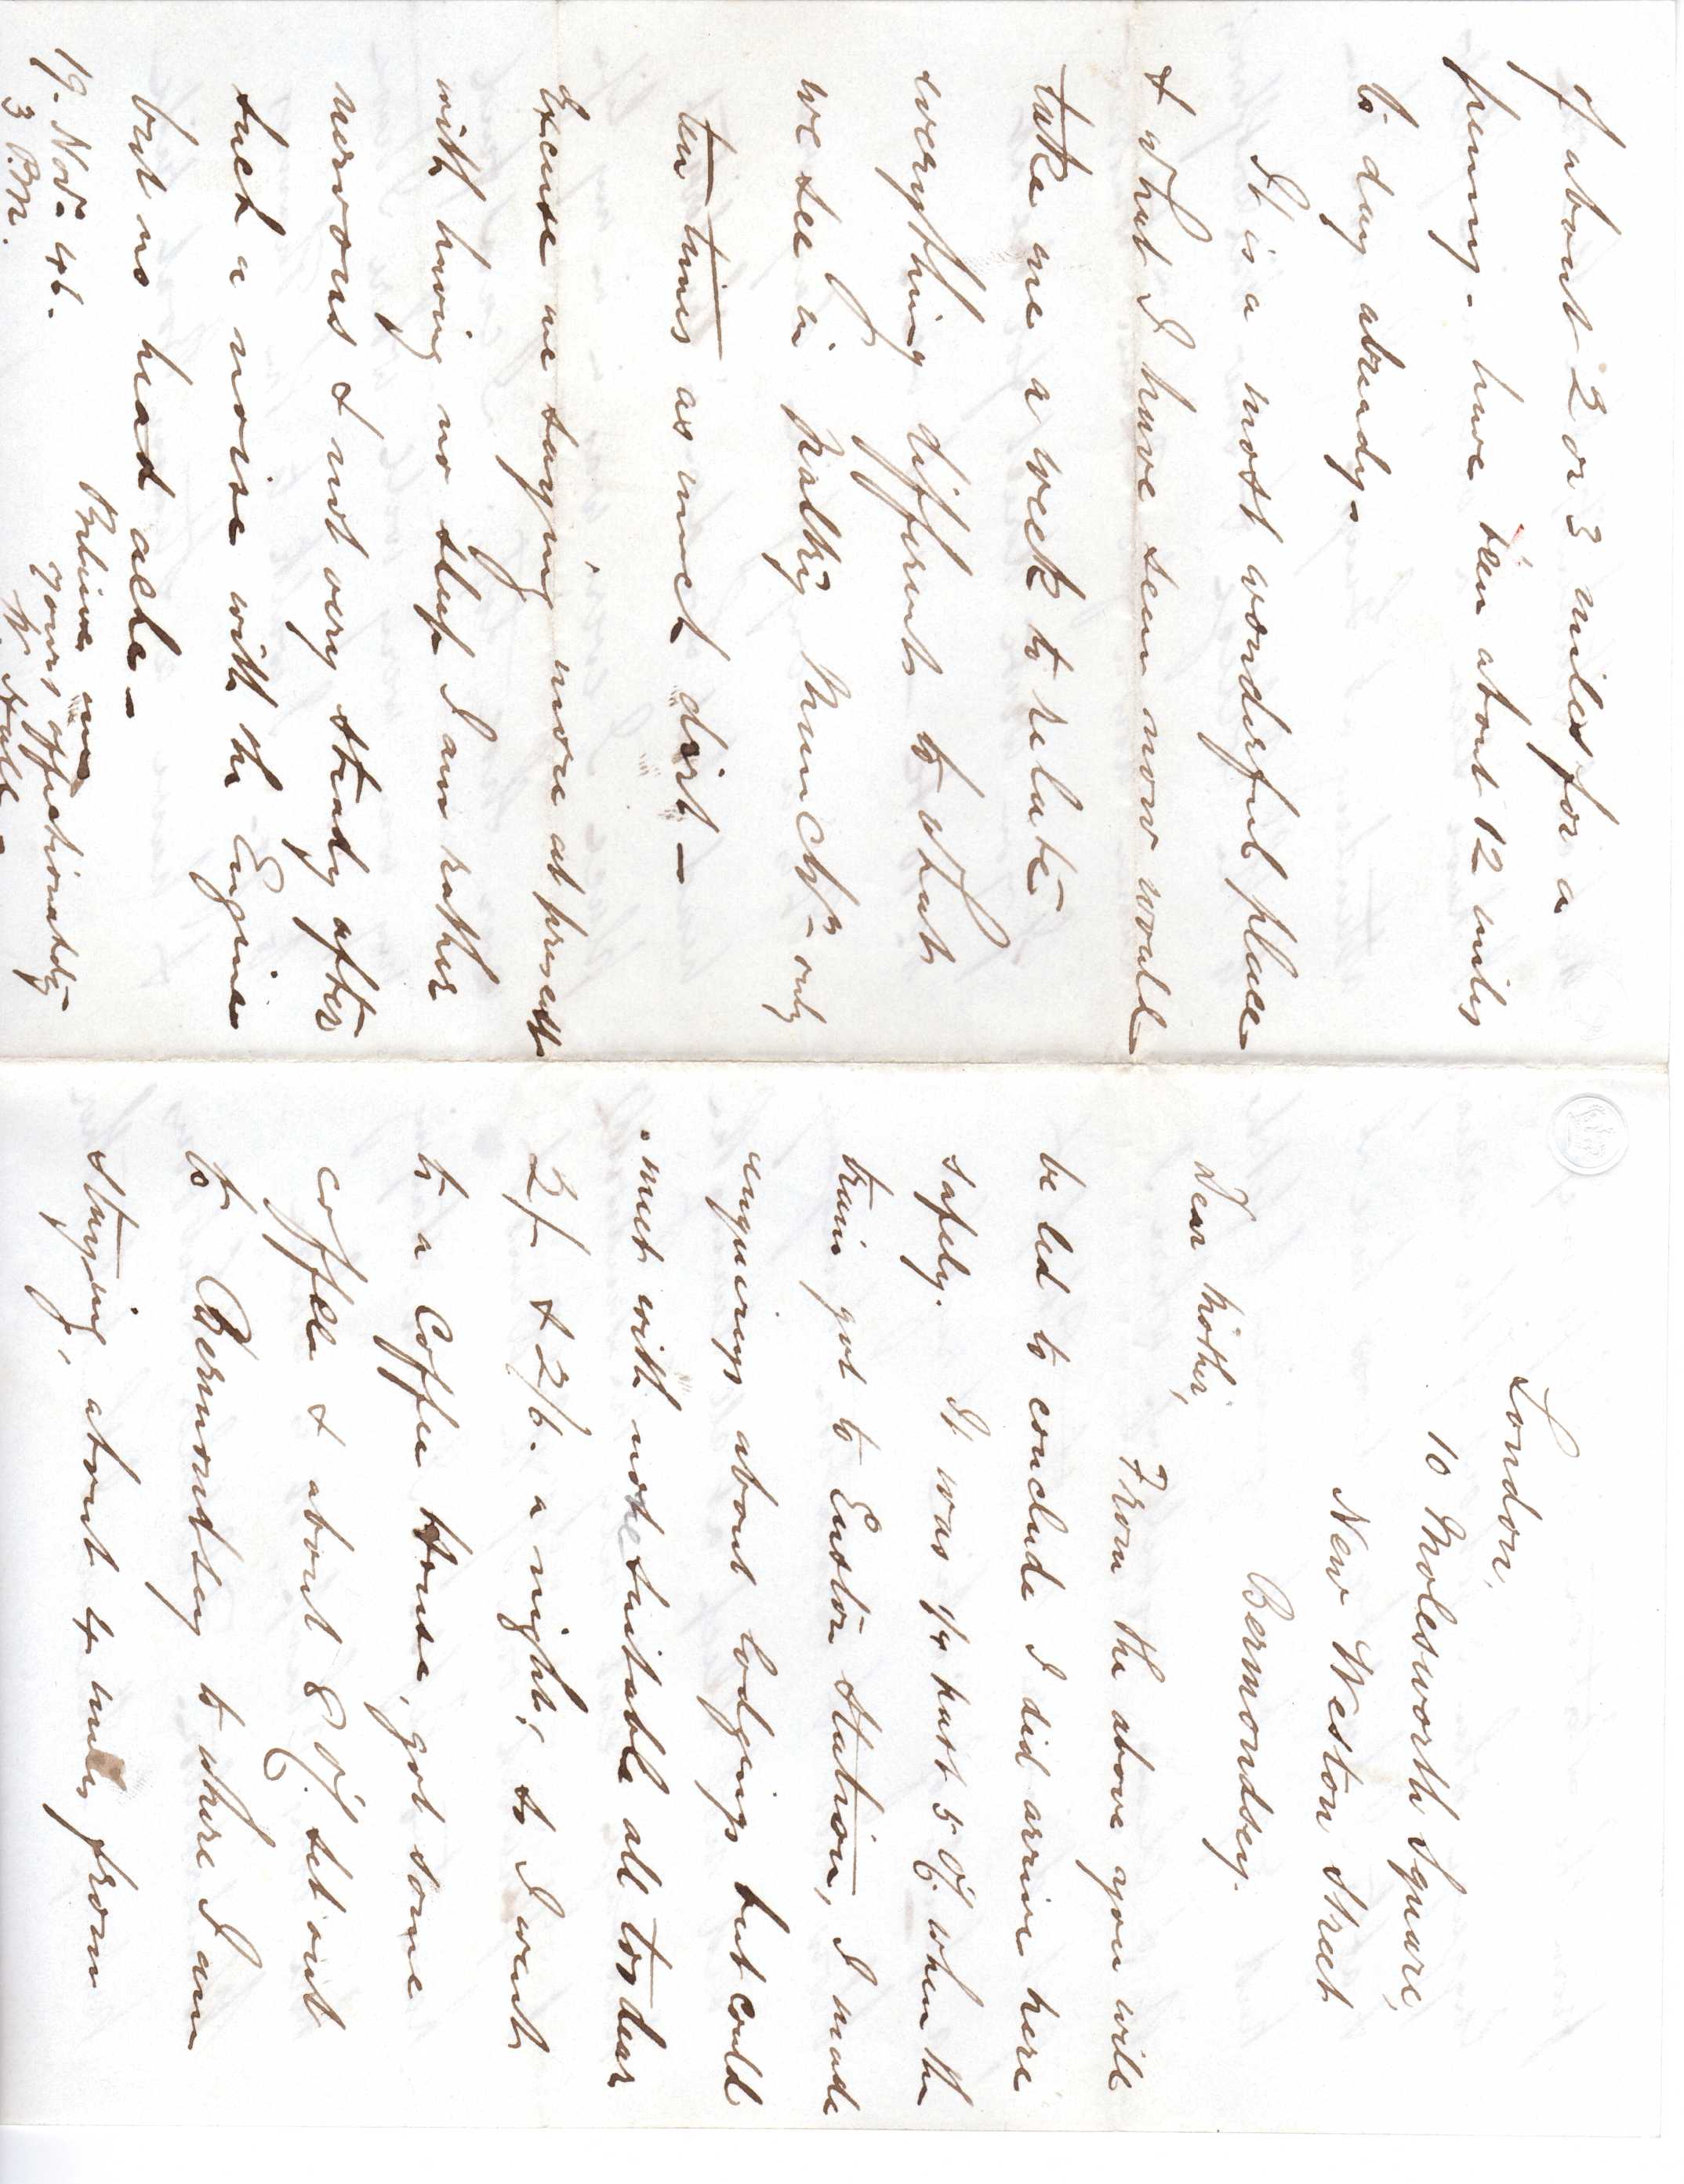 London,
10 Molesworth Square,
New Weston Street
Bermondsey.
Dear Mother,
From the above you will
be led to conclude I did arrive here
safely. It was 1/4 past 5 o'C. when the
train got to Euston Station, I made
enquirings about lodgings but could
meet with none suitable all too dear
2/- & 2/6. a night; so I went
to a Coffee House, got some
coffee & about 8 o'C. set out
to Bermondsey to where I am
staying, about 4 miles from
of about 2 or 3 miles for a
penny - have been about 12 miles
to day already -
It is a most wonderful place
& what I have seen now would
take me a week to relate
everything different to what
we see in paltry Manchr - only
ten times as much dirt -
Excuse me saying more at present
with having no sleep I am rather
nervous & not very steady after
such a noise with the Engine
but no head ache -
Believe me
yours affectionately
19. Novr 46.
3 P.M.